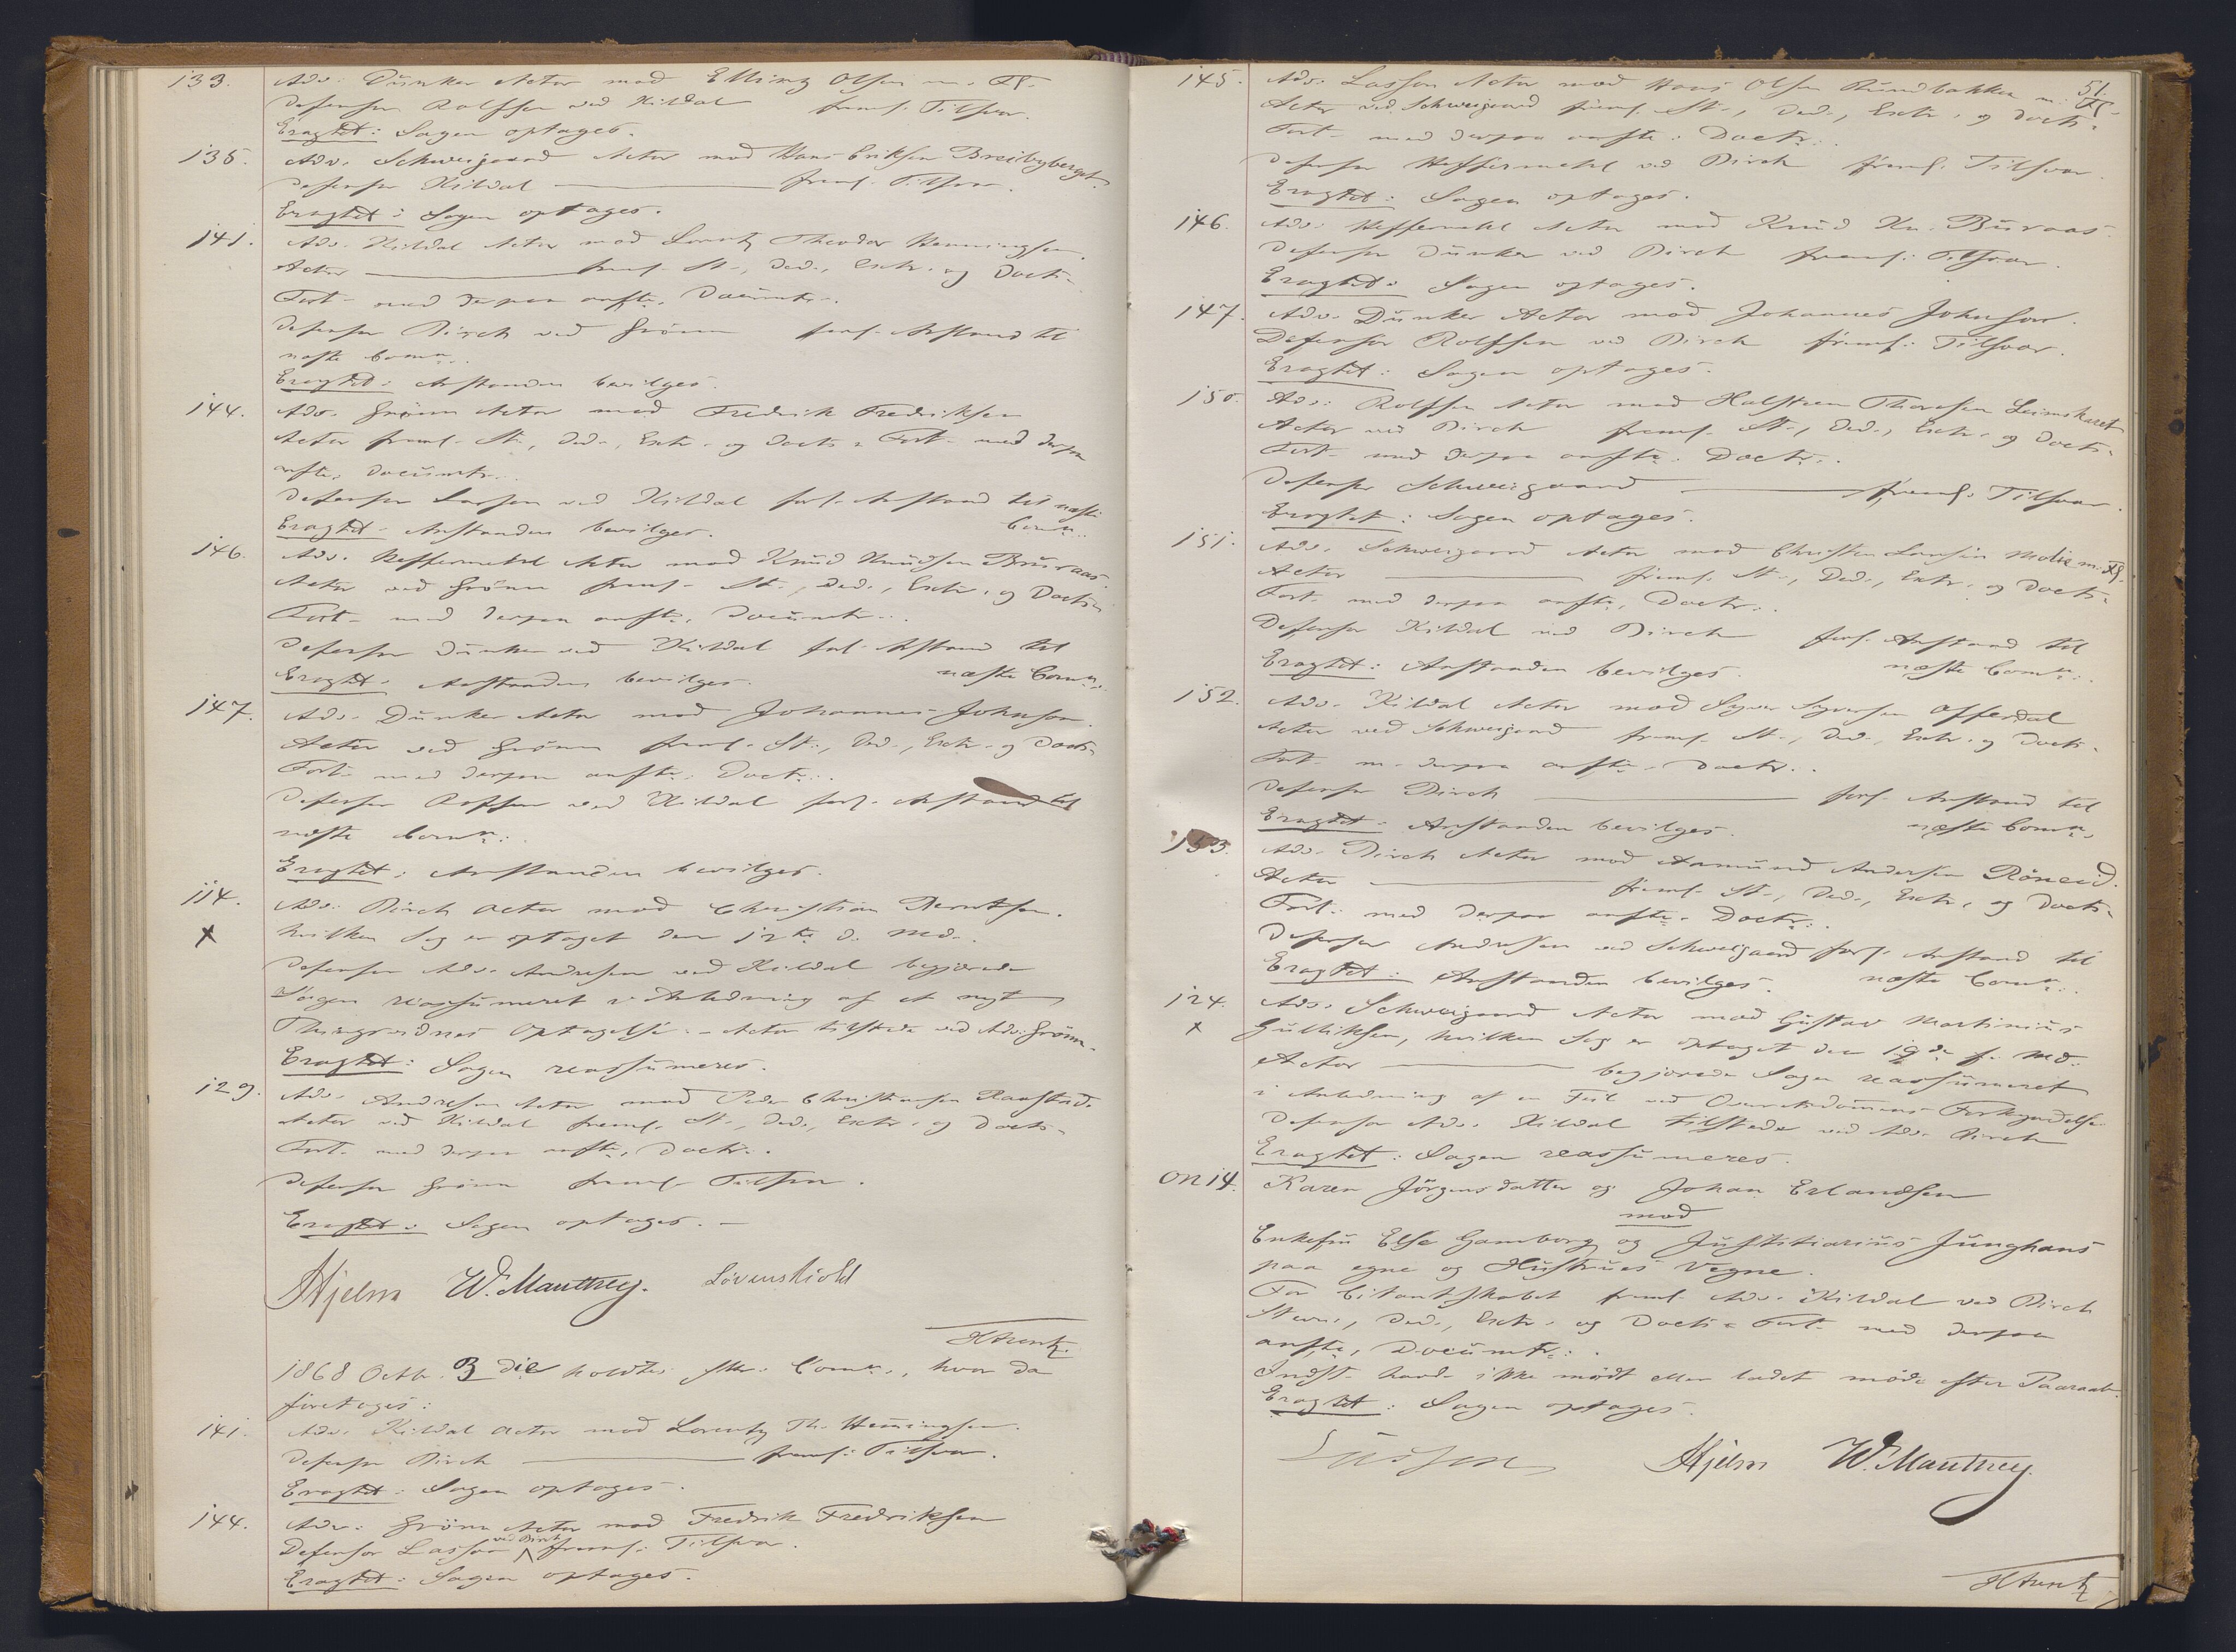 133. Adv. Dunker Actor mod Elling Olsen m. Fl.
Defensor Rolfsen ved Kildal freml. Tilsvar.
Eragtet: Sagen optages.
135. Adv. Schweigaard Actor mod Hans Eriksen Breibyberget.
Defensor Kildal freml. Tilsvar.
Eragtet: Sagen optages.
141. Adv. Kildal Actor mod Lorentz Theodor Henningsen.
Actor freml. St., Ded., Extr. og Docts
Fort. med derpaa anfte. Documtr.
Defensor Birch ved Grönn forl. Anstand til
næste Comn.
Eragtet: Anstanden bevilges.
144. Adv. Grönn Actor mod Fredrik Fredriksen
Actor freml. St., Ded., Extr. og Docts Fort. med derpaa
anfte. Documtr.
Defensor Lasson ved Kildal forl. Anstand til næste
Eragtet: Anstanden bevilges. Comn.
146. Adv. Heffermehl Actor mod Knud Knudsen Buraas.
Actor ved Grönn freml. St., Ded., Extr. og Docts
Fort. med derpaa anfte. Documtr.
Defensor Dunker ved Kildal forl. Anstand til
Eragtet: Anstanden bevilges. næste Comn.
147. Adv. Dunker Actor mod Johannes Johnson.
Actor ved Grönn freml. St., Ded., Extr. og Docts
Fort. med derpaa anfte. Doctr.
Defensor Rolfsen ved Kildal forl. Anstand til
næste Comn.
Eragtet: Anstanden bevilges.
114. Adv. Birch Actor mod Christian Berntsen.
+ hvilken Sag er optaget den 12te d. Md.
Defensor Adv. Andresen ved Kildal begjærede
Sagen reassumeret i Anledning af et nyt
Thingsvidnes Optagelse. - Actor tilstede ved Adv. Grönn.
Eragtet: Sagen reassumeres.
129. Adv. Andresen Actor mod Peder Christensen
Actor ved Kildal freml. St., Ded., Extr. og Docts
Fort. med derpaa anfte. Doctr.
Defensor Grönn freml. Tilsvar.
Eragtet: Sagen optages. -
Hjelm W. Manthey. Lövenskiold
1868 Octbr. 3 die holdtes Comn., hvor da
foretoges:
141. Adv. Kildal Actor mod Lorentz Th. Henningsen.
Defensor Birch freml. Tilsvar.
Eragtet: Sagen optages.
144. Adv. Grönn Actor mod Fredrik Fredriksen
Defensor Lasson ved Birch freml. Tilsvar.
Eragtet: Sagen optages.
51.
145. Adv. Lasson Actor mod Hans Olsen Rundbakken m. Fl.
Actor ved Schweigaard freml. St., Ded., Extr. og Docts
Fort. med derpaa anfte. Doctr.
Defensor Heffermehl ved Birch freml. Tilsvar.
Eragtet: Sagen optages.
146. Adv. Heffermehl Actor mod Knud Kn. Buraas.
Defensor Dunker ved Birch freml. Tilsvar.
Eragtet: Sagen optages.
147. Adv. Dunker Actor mod Johannes Johnson.
Defensor Rolfsen ved Birch freml. Tilsvar.
Eragtet: Sagen optages.
150. Adv. Rolfsen Actor mod Halsten Thoresen
Actor ved Birch freml. St., Ded., Extr. og Docts
Fort. med derpaa anfte. Doctr.
Defensor Schweigaard freml. Tilsvar.
Eragtet: Sagen optages.
151. Adv. Schweigaard Actor mod Christen Larsen m. Fl.
Actor freml. St., Ded., Extr. og Docts
Fort. med derpaa anfte. Doctr.
Defensor Kildal ved Birch forl. Anstand til
Eragtet: Anstanden bevilges. næste Comn.
152. Adv. Kildal Actor mod Syver Syversen Offerdal
Actor ved Schweigaard freml. St., Ded., Extr. og Docts
Fort. m. derpaa anfte. Doctr.
Defensor Birch forl. Anstand til
Eragtet: Anstanden bevilges. næste Comn.
153. Adv. Birch Actor mod Aamund Andersen Röneid.
Actor freml. St., Ded., Extr. og Docts
Fort. med derpaa anfte. Doctr.
Defensor Andresen ved Schweigaard forl. Anstand til
Eragtet: Anstanden bevilges. næste Comn.
124. Adv. Schweigaard Actor mod Gustav Martinius
+ Gulliksen, hvilken Sag er optaget den 19de f. Md.
Actor begjærede Sagen reassumeret
i Anledning af en Feil ved Overretsdommens Forkyndelse.
Defensor Adv. Kildal tilstede ved Adv. Birch
Eragtet: Sagen reassumeres.
ON 14. Karen Jörgensdatter og Johan Erlandsen
mod
Enkefru Else Gamborg og Justitiarius Junghans
paa egne og Hustrues Vegne.
For Citantskabet freml. Adv. Kildal ved Birch
Stevn., Ded., Extr. og Docts Fort. med derpaa
anfte. Documtr.
Indst. havde ikke mødt eller ladet møde efter Paaraab.
Eragtet: Sagen optages.
Lasson Hjelm W. Manthey.